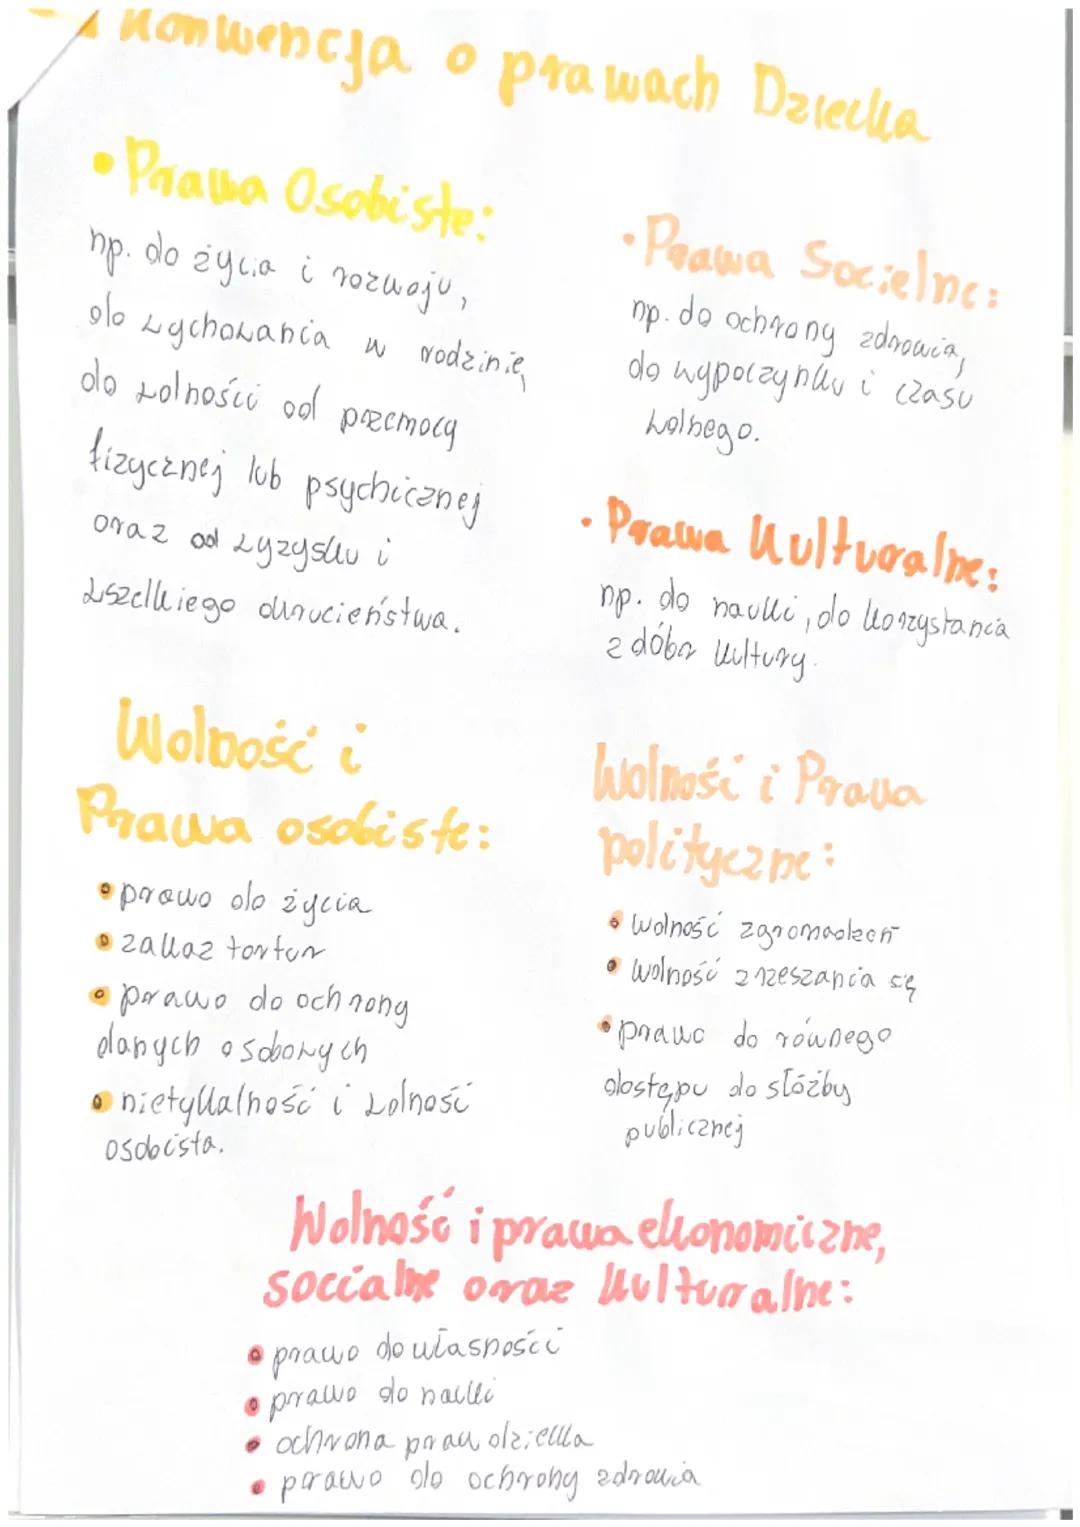 Konwencja o prawach Dziecka
• Prawa Osobiste:
np. do życia i rozwoju,
do wychowania w rodzinie,
do wolności od przemocy
fizycznej lub psychicznej
oraz od wyzysku i
wszelkiego okrucieństwa.
• Prawa Socielne:
np. do ochrony zdrowia,
do wypoczynku i czasu
wolnego.
• Prawa Kulturalne:
np. do nauki, do korzystania
z dóbr kultury.
Wolność i
Prawa osobiste:
• prawo do życia
• zakaz tortur
• prawo do ochrony
danych osobowych
• nietykalność i wolność
osobista.
Wolność i Prawa
polityczne:
• wolność zgromadzeń
• wolność zrzeszania się
• prawo do równego
dostępu do słóżby
publicznej
Wolność i prawa ekonomiczne,
socialne oraz kulturalne:
• prawo do własności
• prawo do nauki
• ochrona praw dziecka
• prawo do ochrony zdrowia